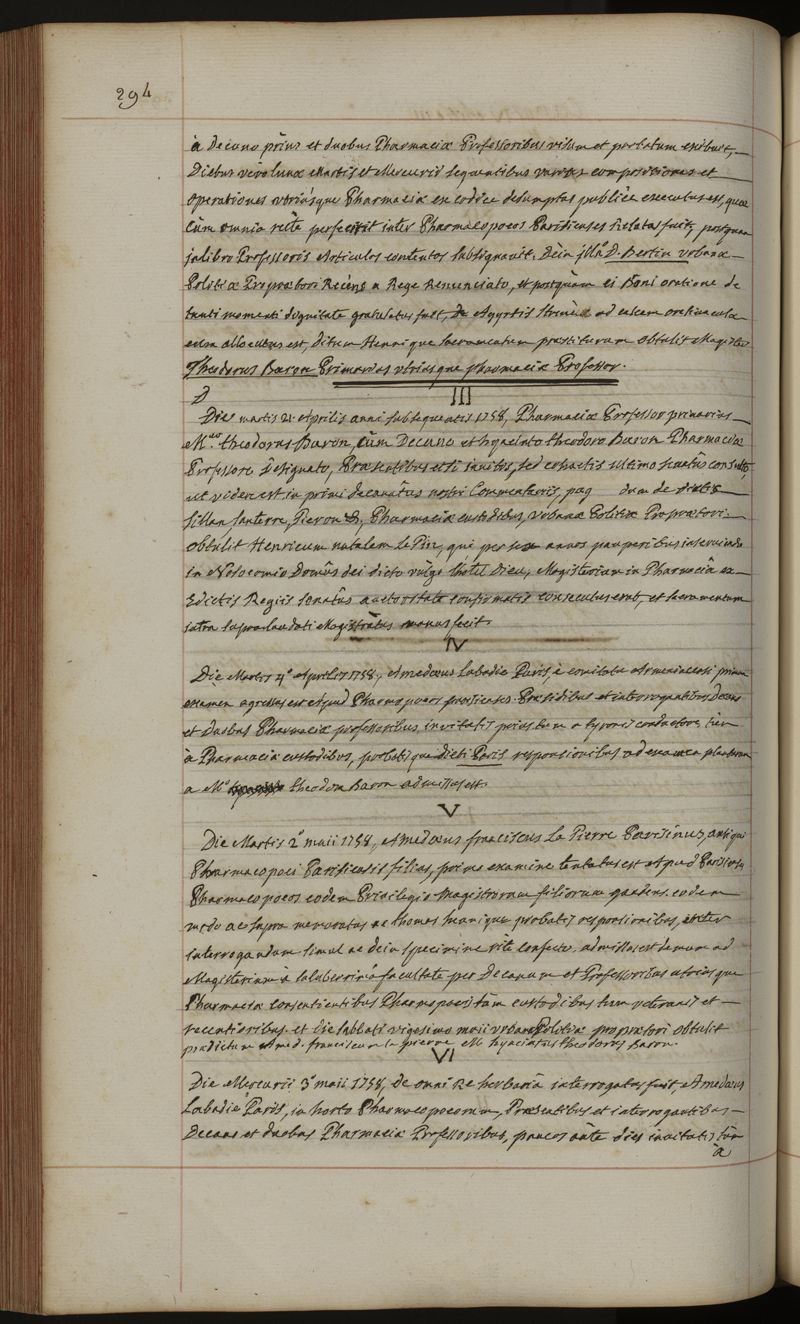 294
à Decano priùs et duobus Pharmaciæ Professoribus visum et probatum exibuit,
Diebus verò lunæ Martis et Mercurii sequentibus varias compositiones et
operationes utriúsque Pharmaciæ ex codice desumptas publicè executus est, quæ
Cùm omnia rectè perfecerit inter Pharmacopoeos Parisienses Relatus fuit, postquam
in libro Professoris Articulos contentos subsignavit. Dein D. Bertin urbanæ
Politiæ Propraetori Recèns a Rege Renunciato, et postquàm ei oratione de
tanti momenti dignitate gratulatus fuit, ad eascem
est, Henrique sacramentum præstiturum obtulit Magister
Theodorus Baron Primarius utriusque pharmaciæ Professor.
III
Die martis 4 Aprilis anni subsequentis 1758, Pharmaciæ Professor primarius
M.er theodorus Baron, cùm Decano et hyacinto theodoro Baron Pharmaciæ
Professore Designato, Præsentibus etsi invitis, sed coactis ultimo senatûs consulto,
ut videre est in primi decanatûs nostri Commentariis, pag dum de dictis
sillan santerre, Pieron &, Pharmaciæ custodibus, urbanæ Politiæ Propraetori
obtulit Henricum natalem Le Pin, qui per sex annos pauperibus inserviendo
in Nosocomio Domûs dei dicto vulgò hôtel Dieu, Magisterium in Pharmaciâ ex
Edictis Regiis senatûs auctoritate confirmatis consecutus erat, et sacramentum
intra supra laudati Magistratus manus fecit.
IV
Die Martis 4º Aprilis 1758, Amedæus Labadie Paris, è comitatu Armeniacensi primum
examen agressus est Apud Pharmacopoeos parisienses. Præsidibus et interrogantibus Decano
et Duobus Pharmaciæ professoribus, invitatis priùs tum a tyronis conductore, tùm
à Pharmaciæ custodibus, probatisque dicti Paris responsionibus ad examen plantarum
a Mº theodoro Baron admissus est.
V
Die Martis 2º maii 1758, Amedæus franciscus La Pierre Parisinus, antiqui
Pharmacopoei Parisiensis filius, primo examine tentatus est Apud Parisienses
Pharmacopoeos eodem Privilegio Magistrorum filiorum gaudens. eodem
modo ac supra memoratus ac thomas henrique probatis responsionibus, iterùm
interrogandum simul ac dein specimine ritè confecto, admissus est demum ad
Magisterium à saluberrimâ facultate per Decanum et Professoribus utriusque
Pharmaciæ consentientibus Pharmacopoeis tùm custodibus tum veteranis et
recentioribus. et die sabbati vigesimo maii urbanæ Politiæ propraetori obtulit
prædictum Amed. franciscum la pierre M. hyacintus theodorus Baron.
VI
Die Mercurii 3º maii 1758, de omni Re herbariâ interrogatus fuit, Amedæus
Labadie Paris, in horto Pharmacopoeorum, Præsentibus et interrogantibus
Decano et duobus Pharmaciæ Professoribus, paucos ante dies invitatis tùm
à